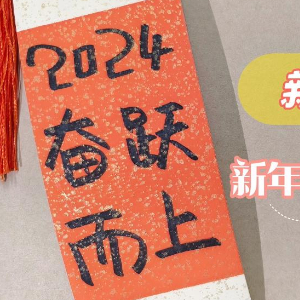 2024
奋跃
而上
新
新年